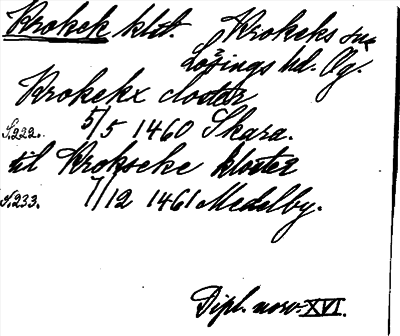 Krokek klst. Krokeks sn
Lösings hd. Ög.
Krokekx closter
S.222. 5/5 1460 Skara.
til Krokseke kloster
S.233. 7/12 1461 Medelby.
Dipl. norv. XVI.